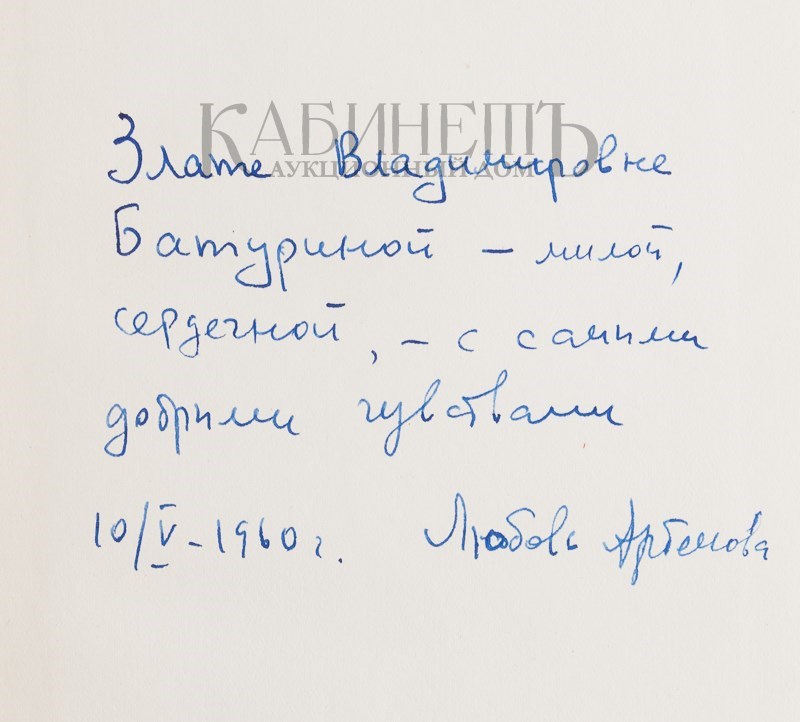 КАБИНЕТЪ
АУКЦИОННЫЙ ДОМ
Злате Владимировне
Батуриной – милой,
сердечной, – с самыми
добрыми чувствами
10/V – 1960 г. Любовь Артемова